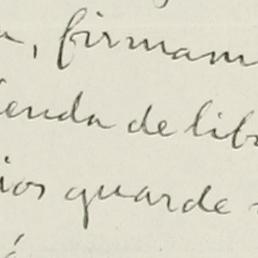 , firmam
ienda de lib
ios guarde